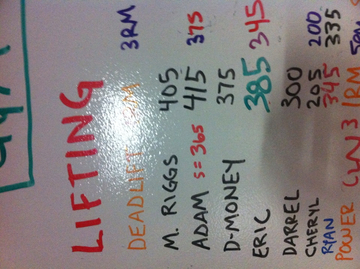 LIFTING
DEADLIFT 3RM
M. RIGGS 405
ADAM S=365 415 375
D-MONEY 375
ERIC 385 345
DARREL 300
CHERYL 205 200
RYAN 345 335
POWER CLN 3 1RM